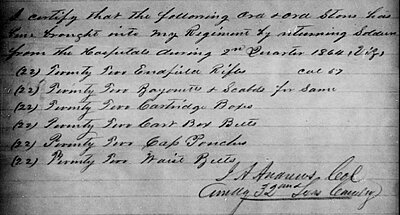 I certify that the following Ord & Ord Stors has
been brought into my Regiment by returning Soldiers
from the Hospitals during 2nd Quarter 1864, Viz,
(22) Twenty Two Enafield Rifles cal 57
(22) Twenty Two Bayonetts & Scabds for Same
(22) Twenty Two Cartridge Boxs
(22) Twenty Two Cart Box Belts
(22) Twenty Two Cap Pouches
(22) Twenty Two Waist Belts
J A Andrews, Col
Comdg 32nd Tex Cavalry